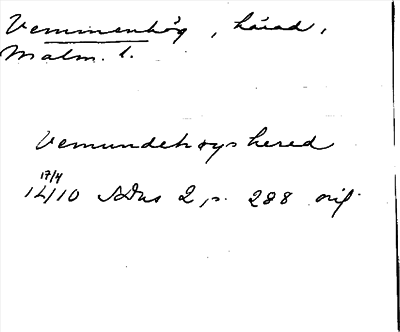 Vemmenhög, härad,
Malm. l.
Vemundehøgs hered
17/4
1410 SDns 2, s. 288 orig.